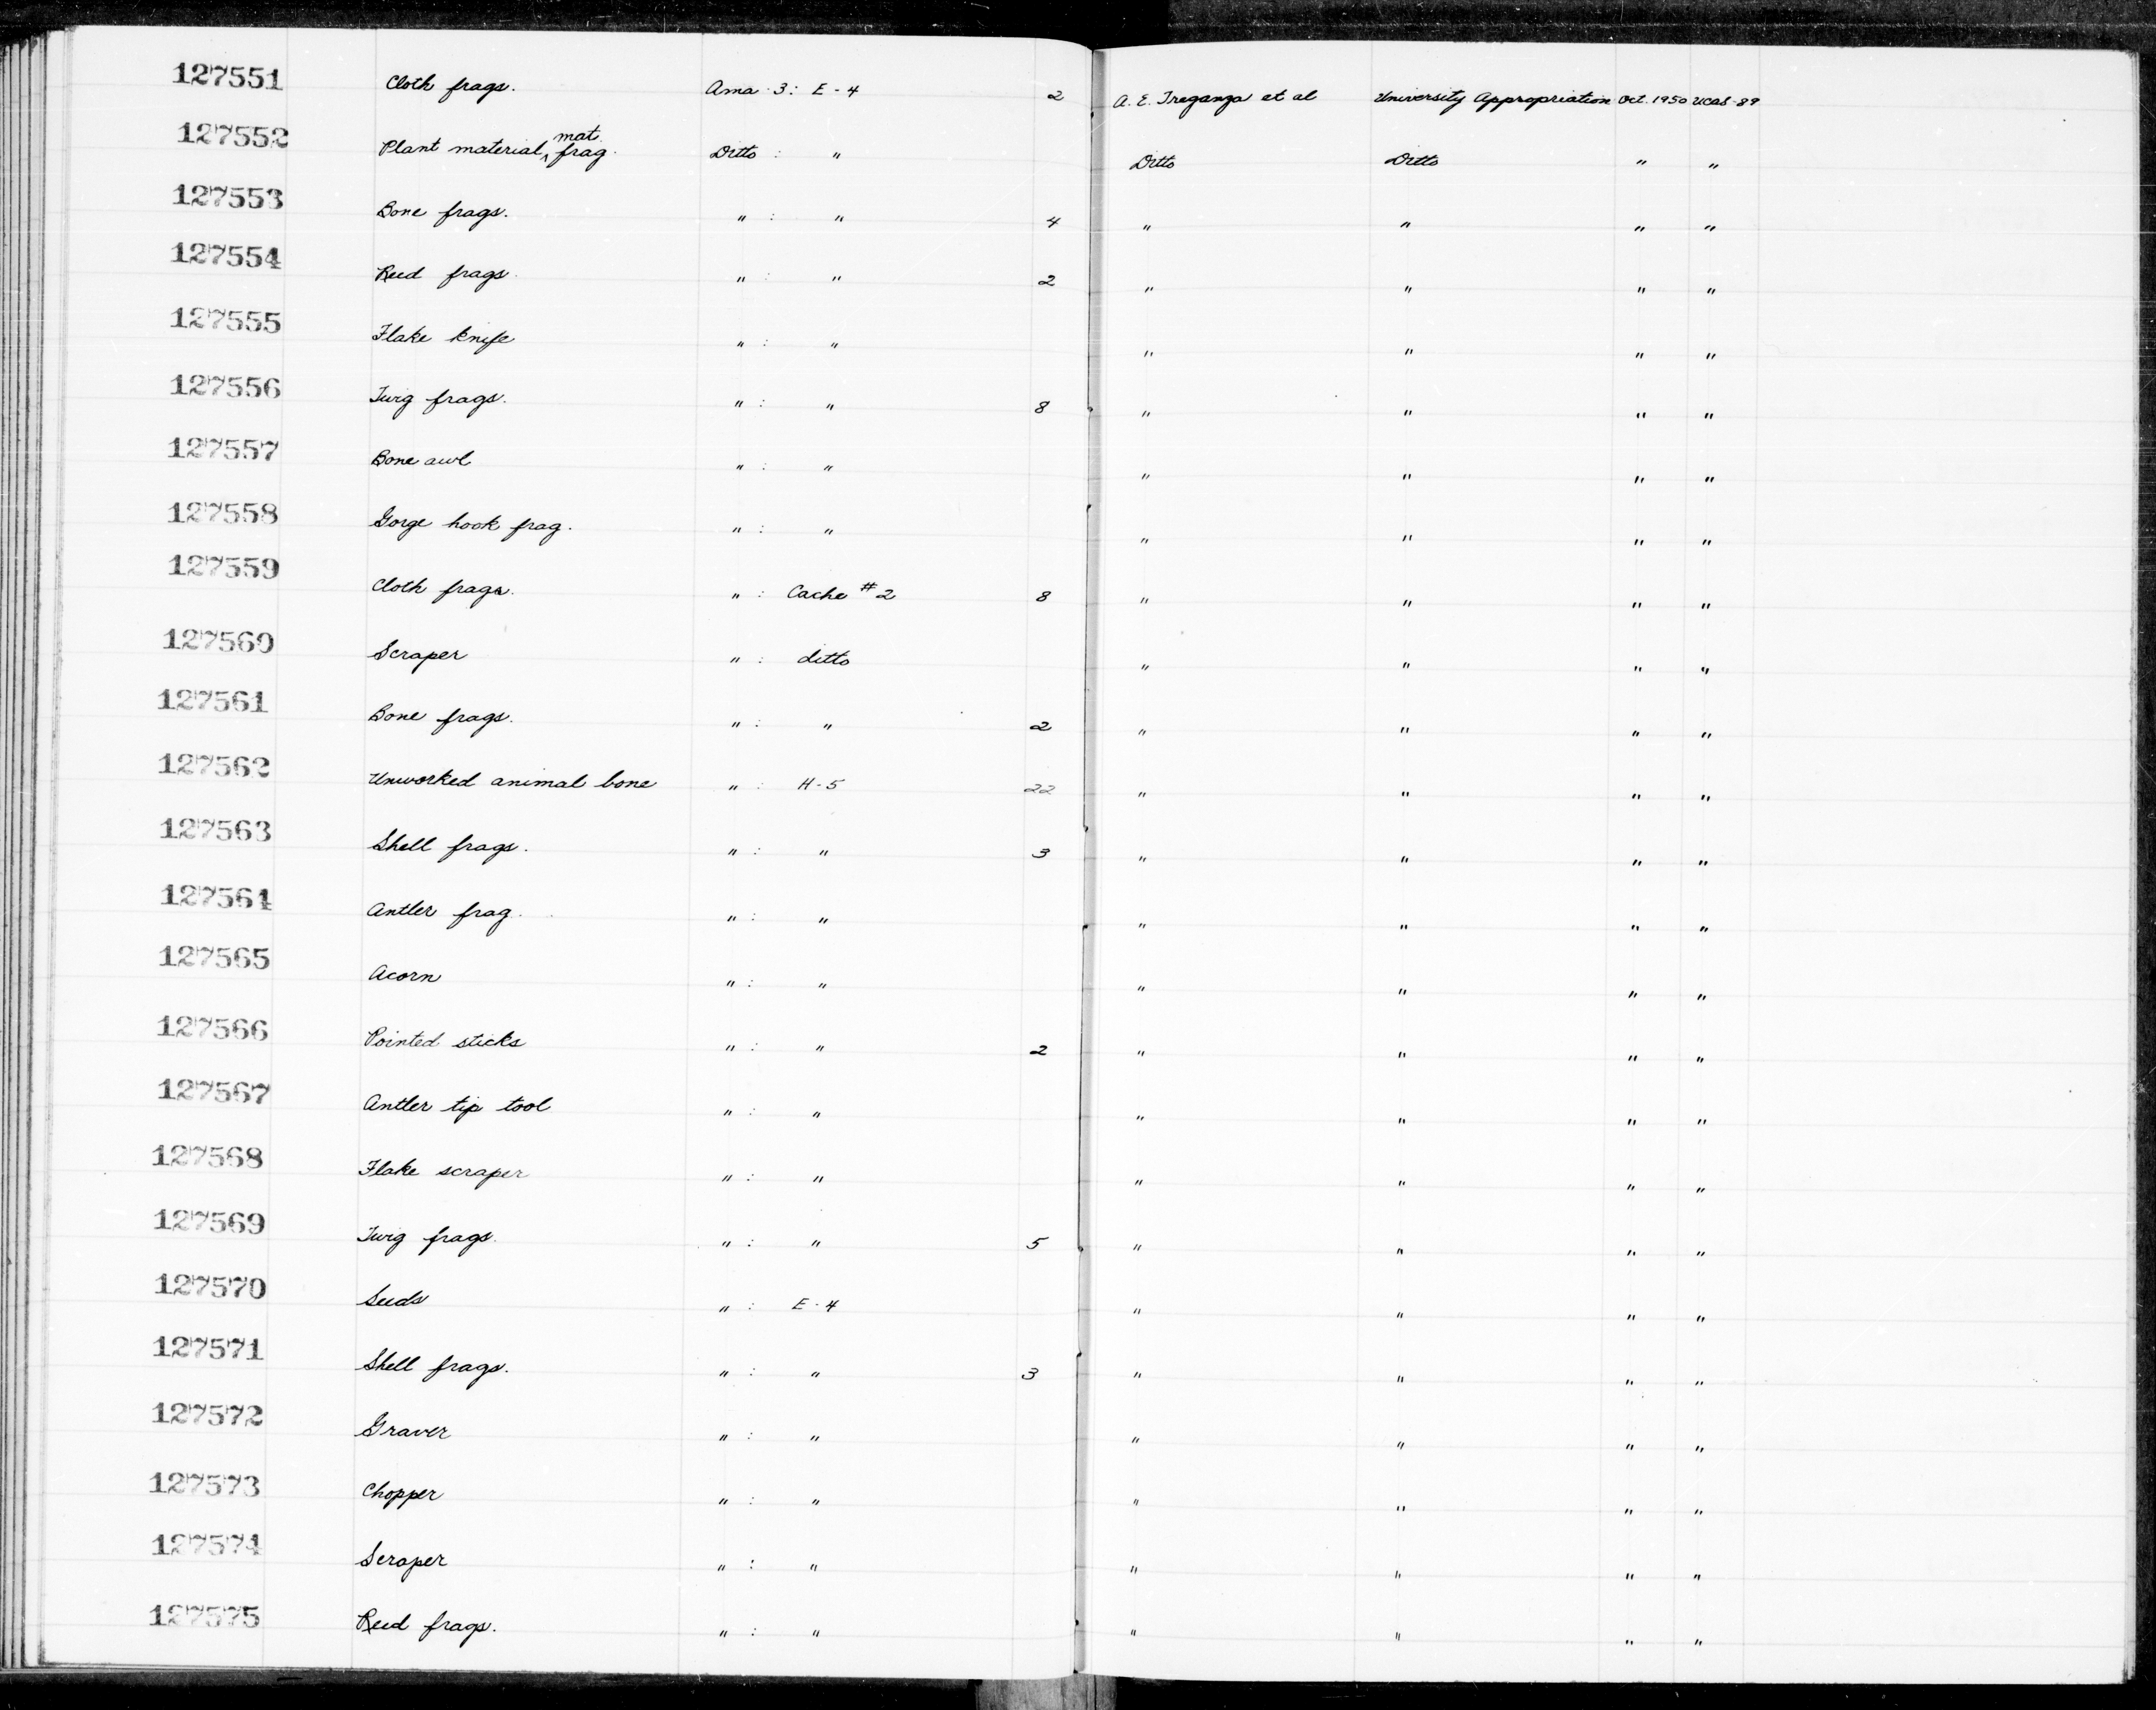 127551 Cloth frags. Ama-3: E-4 2 A. E. Treganza et al University Appropriation Oct. 1950 UCAS-89
127552 Plant material, mat frag. Ditto : " Ditto Ditto " "
127553 Bone frags. " : " 4 " " " "
127554 Reed frags. " : " 2 " " " "
127555 Flake knife " : " " " " "
127556 Twig frags. " : " 8 " " " "
127557 Bone awl " : " " " " "
127558 Gorge hook frag. " : " " " " "
127559 Cloth frags. " : Cache #2 8 " " " "
127560 Scraper " : ditto " " " "
127561 Bone frags. " : " 2 " " " "
127562 Unworked animal bone " : H-5 22 " " " "
127563 Shell frags. " : " 3 " " " "
127564 Antler frag. " : " " " " "
127565 Acorn " : " " " " "
127566 Pointed sticks " : " 2 " " " "
127567 Antler tip tool " : " " " " "
127568 Flake scraper " : " " " " "
127569 Twig frags. " : " 5 " " " "
127570 Seeds " : E-4 " " " "
127571 Shell frags. " : " 3 " " " "
127572 Graver " : " " " " "
127573 Chopper " : " " " " "
127574 Scraper " : " " " " "
127575 Reed frags. " : " " " " "